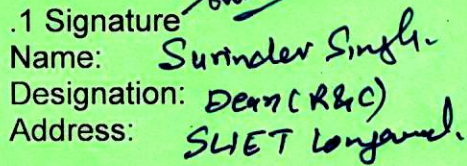 .1 Signature
Name: Surinder Singh.
Designation: Dean (R&C)
Address: SLIET Longowal.